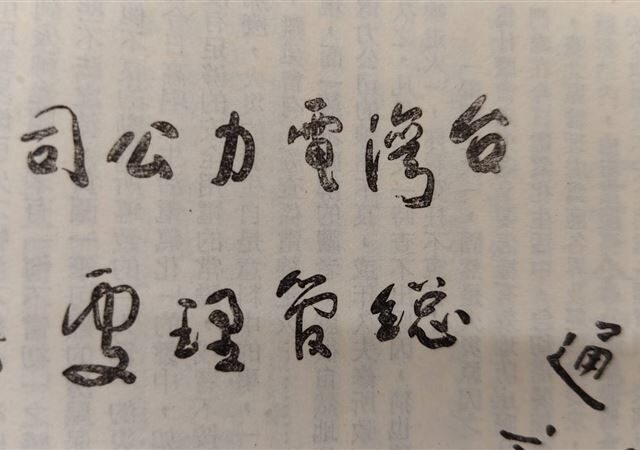 台灣電力公司
總管理處
通